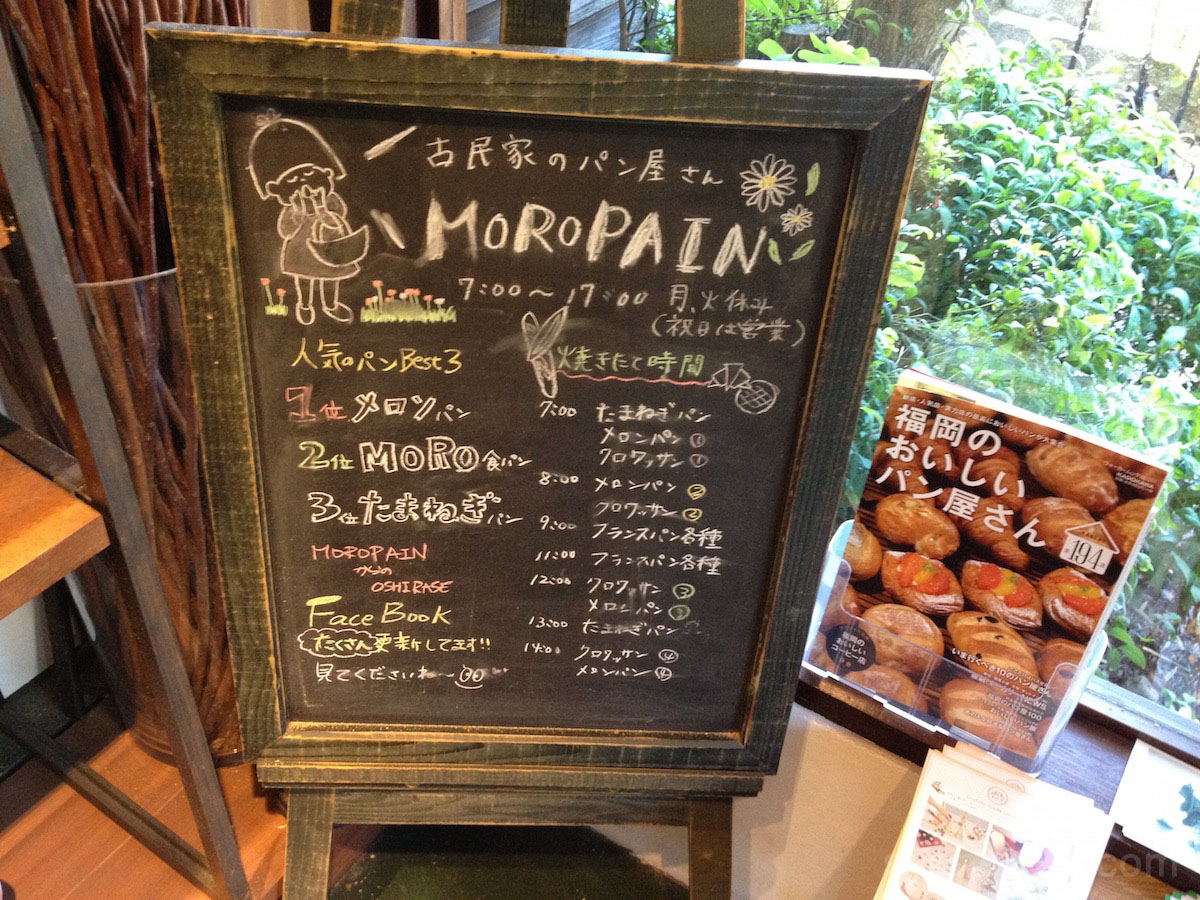 古民家のパン屋さん
MOROPAIN
7:00〜17:00 月、火休み
(祝日は営業)
人気のパンBest3
1位 メロンパン
2位 MORO食パン
3位 たまねぎパン
MOROPAIN
からの
OSHIRASE
FaceBook
たくさん更新してます!!
見てくださいね〜
焼きたて時間
7:00 たまねぎパン
メロンパン①
クロワッサン①
8:00 メロンパン②
クロワッサン②
9:00 フランスパン各種
11:00 フランスパン各種
12:00 クロワッサン③
メロンパン③
13:00 たまねぎパン
14:00 クロワッサン④
メロンパン④
福岡の
おいしい
パン屋さん
194
福岡の
おいしい
コーヒー店
いま行くべき10のパン屋さん
NEWS